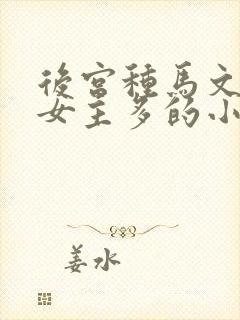 後宮種馬文
女主多的小
姜水